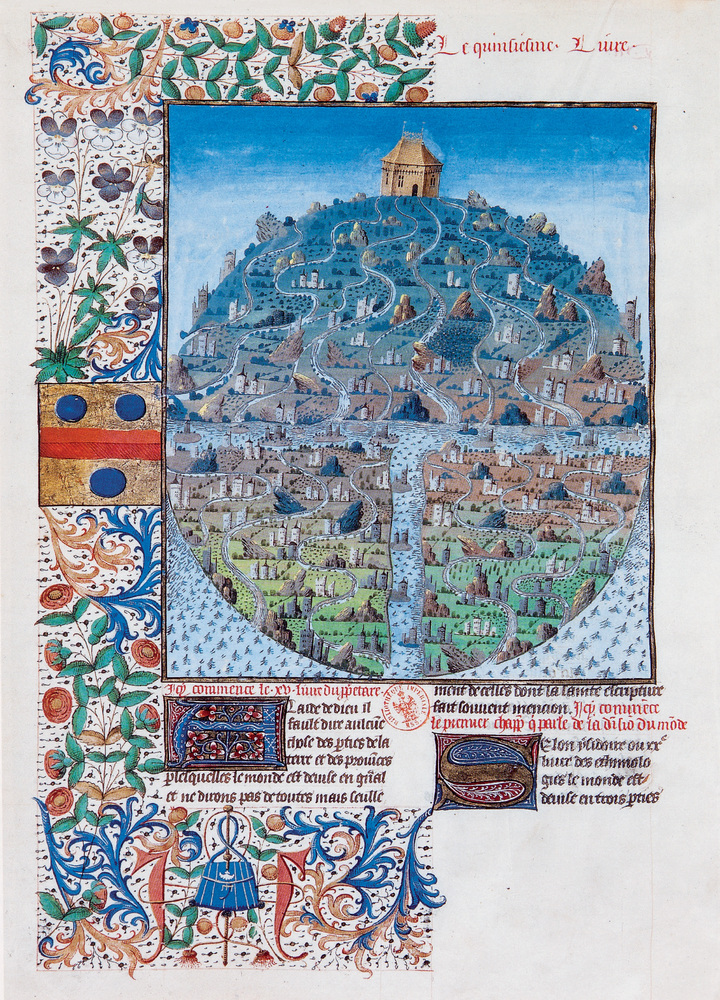 Le quinsiesme. Liure.
Icy commence le .xv. liure du ppetare
A Laide de dieu il
fauldt dire aulcune
chose des pties de la
terre et des prouices
plesquelles le monde est deuise en gnal
et ne dirons pas de toutes mais seulle
ment de celles dont la sainte escripture
fait souuent mencion. Icy commece
le premier chapp q parle de la diuisio du mode
Selon ysidore ou xve
liure des ethimolo
gies le monde est
deuise en trois pties